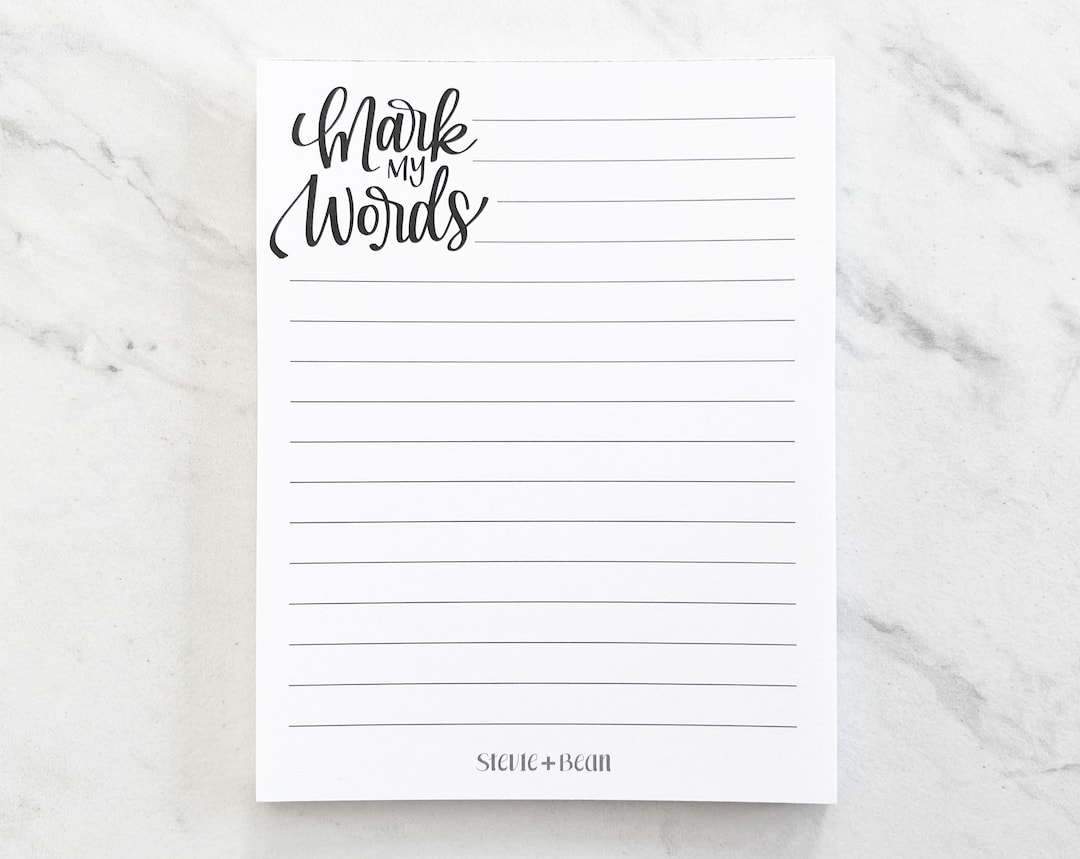 Mark
MY
Words
Stevie + Bean